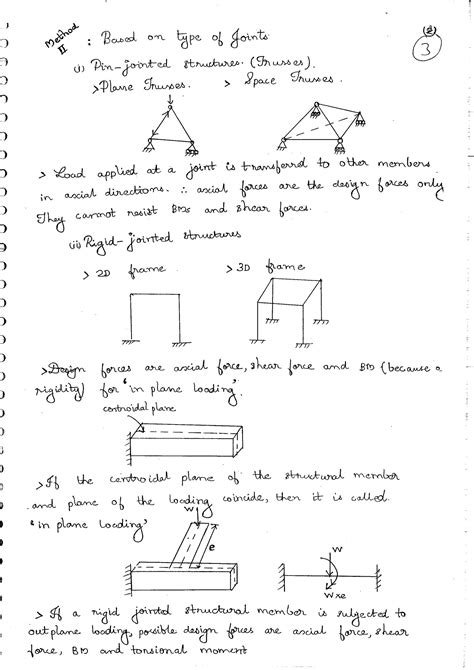 Method II : Based on type of Joints
(2)
3
(i) Pin-jointed structures. (Trusses).
> Plane Trusses. > Space Trusses.
> Load applied at a joint is transferred to other members
in axial directions. ∴ axial forces are the design forces only
They cannot resist BMs and shear forces.
(ii) Rigid-jointed structures
> 2D frame > 3D frame
> Design forces are axial force, shear force and BM (because of
rigidity) for 'in plane loading'.
centroidal plane
> If the centroidal plane of the structural member
and plane of the loading coincide, then it is called
'in plane loading'
W
e
W
W×e
> If a rigid jointed structural member is subjected to
outplane loading, possible design forces are axial force, shear
force, BM and torsional moment